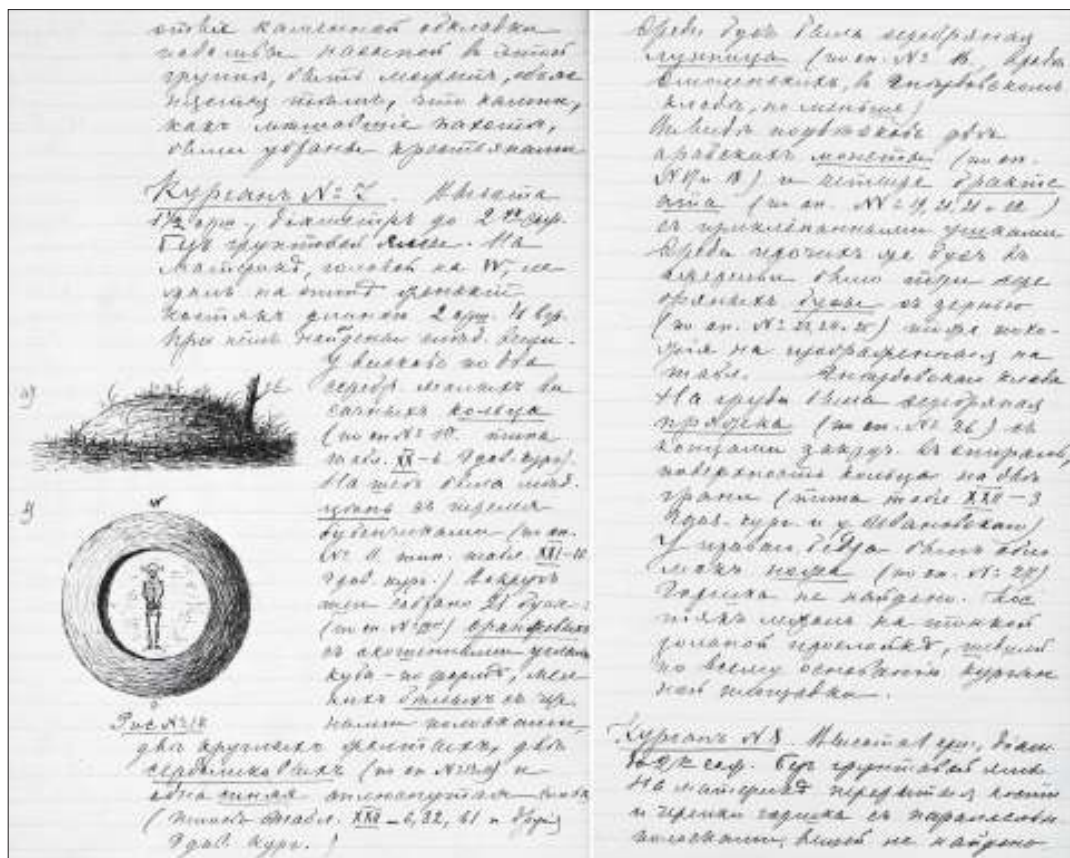 ствiе каменной обкладки
подошвы насыпей в этой
группѣ, быть можетъ, объяс
няется тѣмъ, что камни,
какъ мѣшавшiе пахотѣ,
были убраны крестьянами
Курганъ № 7. Высота
арш, дiаметръ до 2 саж.
Безъ грунтовой ямы. На
материкѣ, головой на W, ле
жалъ на спинѣ женскiй
костякъ длиной 2 арш. вер.
При немъ найдены слѣд. вещи.
У висковъ по два
серебр малыхъ ви
сочныхъ кольца
(по оп № 10. типа
табл. XX – 6 Гдов. кург.)
На шеѣ была мѣд.
цѣпь съ тремя
бубенчиками (по оп.
№ 11. тип. табл. XXI – 10
Гдов. кург.) Вокругъ
шеи собрано 21 буса:
(по оп №) оранжевыхъ
съ скошенными углами
куба – по формѣ, мел
кихъ бѣлыхъ съ чер
ными полосками,
а)
б)
W
O
Рис №
двѣ круглыхъ двѣ
сердоликовыхъ (по оп №) и
одна синяя
(типовъ табл. XXII – 6, 32, 61 и
Гдов. кург.)
Среди бусъ была серебряная
лунница (по оп. № вродѣ
Смоленскихъ, в Гнѣздовскомъ
кладѣ, но меньше)
Въ видѣ подвѣсокъ двѣ
арабскихъ монеты (по оп.
№ 17 и 18) и четыре бракте
ата (по оп. №№ 19, 20, 21 и 22)
съ приклёпанными ушками
Среди прочихъ же бусъ въ
ожерельи было три сере
бряныхъ бусы съ зернью
(по оп. № 23, 24 и 25) типа похо
жiя на изображенныя на
табл. Гнѣздовскаго клада
На груди была серебряная
пряжка (по оп. № 26) съ
концами закруч. въ спираль,
поверхность кольца на двѣ
грани (типа табл XXII – 3
Гдов. кург и у Ивановскаго)
У праваго бедра былъ обло
мокъ ножа (по оп. № 27)
Горшка не найдено. Кос
тякъ лежалъ на тонкой
зольной прослойкѣ, шедшей
по всему основанiю курган
ной площадки.
Курганъ № 8. Высота арш, дiам.
до саж. Безъ грунтовой ямы.
На материкѣ перерытыя кости
и черепки горшка съ
полосками, вещей не найдено